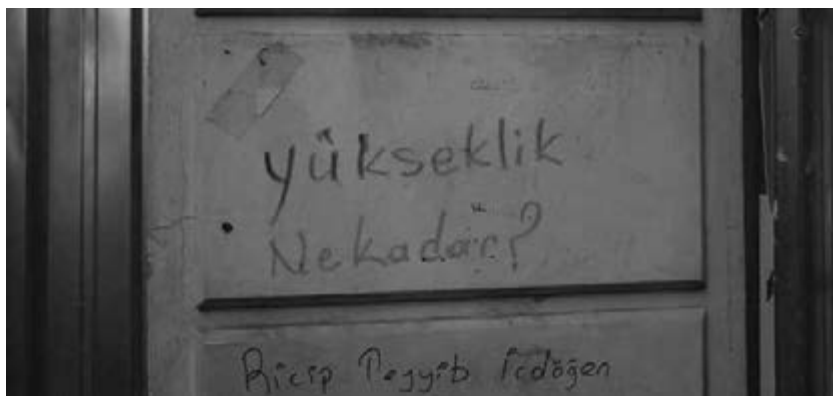 yükseklik
Nekadar?
Ricip Teyyib İrdöğen